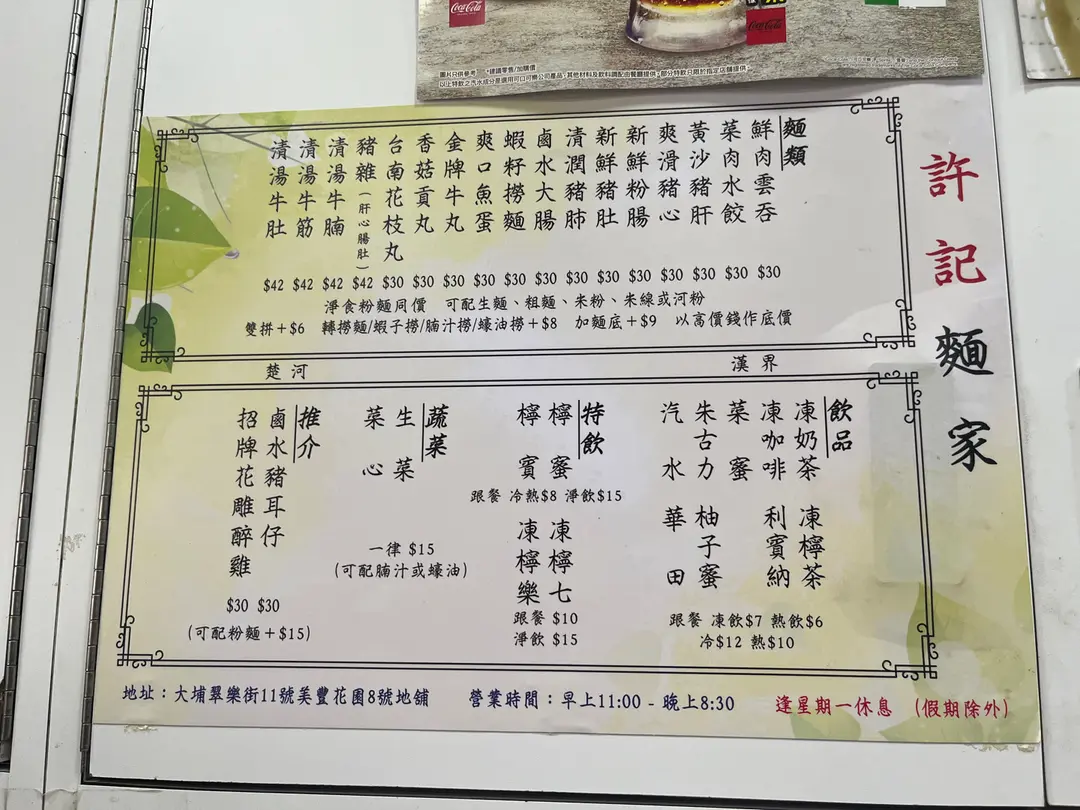 Coca-Cola
Coca-Cola
圖片只供參考 *建議零售/加購價
以上特飲之汽水成分是選用可口可樂公司產品，其他材料及飲料調配由餐廳提供，部分特飲只限於指定店舖提供。
許記麵家
麵類
鮮肉雲吞 $30
菜肉水餃 $30
黃沙豬肝 $30
爽滑豬心 $30
新鮮粉腸 $30
新鮮豬肚 $30
清潤豬肺 $30
鹵水大腸 $30
蝦籽撈麵 $30
爽口魚蛋 $30
金牌牛丸 $30
香菇貢丸 $30
台南花枝丸 $30
豬雜(肝心腸肚) $42
清湯牛腩 $42
清湯牛筋 $42
清湯牛肚 $42
淨食粉麵同價 可配生麵、粗麵、米粉、米線或河粉
雙拼+$6 轉撈麵/蝦子撈/腩汁撈/蠔油撈+$8 加麵底+$9 以高價錢作底價
楚河 漢界
飲品
凍奶茶
凍咖啡
菜蜜
朱古力
汽水
凍檸茶
利賓納
柚子蜜
華田
跟餐 凍飲$7 熱飲$6
冷$12 熱$10
特飲
檸蜜
檸賓
跟餐 冷熱$8 淨飲$15
凍檸七
凍檸樂
跟餐 $10
淨飲 $15
蔬菜
生菜
菜心
一律 $15
(可配腩汁或蠔油)
推介
鹵水豬耳仔 $30
招牌花雕醉雞 $30
(可配粉麵+$15)
地址：大埔翠樂街11號美豐花園8號地舖 營業時間：早上11:00 - 晚上8:30 逢星期一休息 (假期除外)